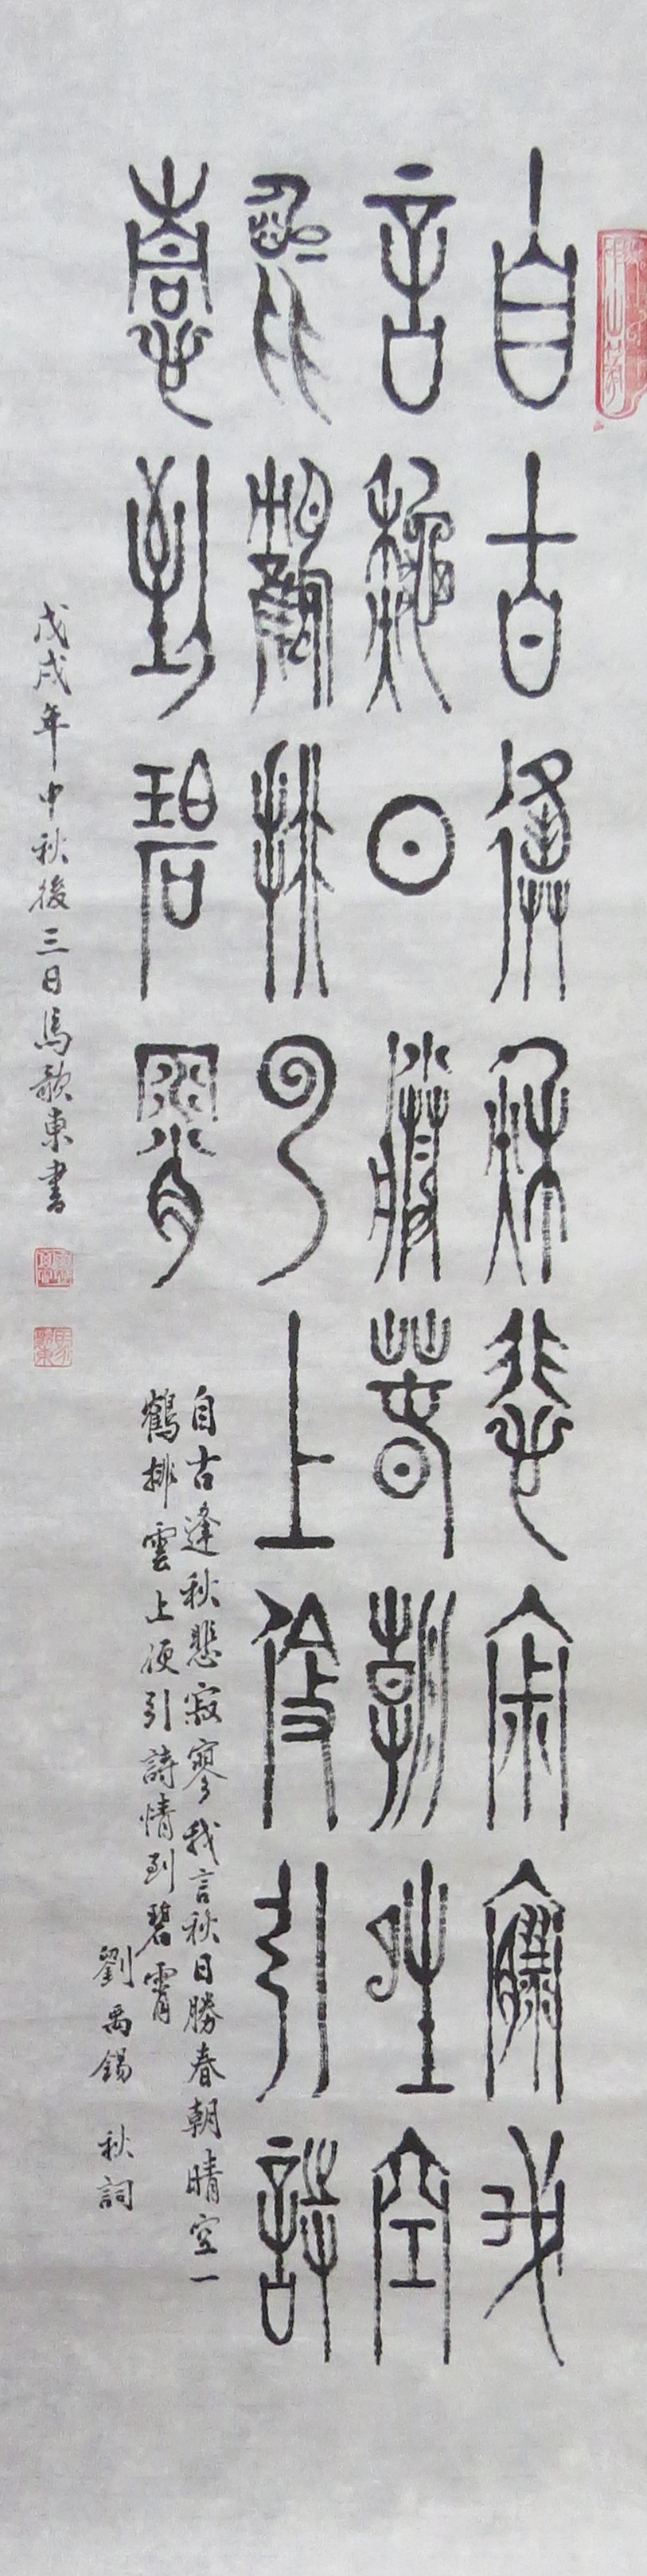 自古逢秋悲寂寥我
言秋日勝春朝晴空
一鶴排雲上便引詩
情到碧霄
自古逢秋悲寂寥我言秋日勝春朝晴空一
鶴排雲上便引詩情到碧霄
劉禹錫 秋詞
戊戌年中秋後三日馬歌東書